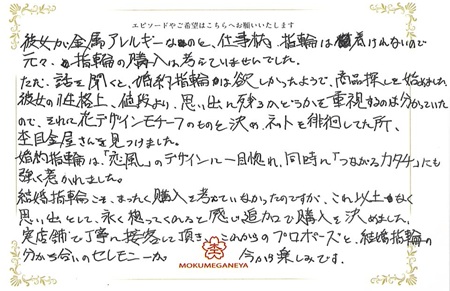 エピソードやご希望はこちらへお願いいたします
彼女が金属アレルギーなのと、仕事柄、指輪は着けれないので
元々、指輪の購入は考えていませんでした。
ただ、話を聞くと、婚約指輪は欲しかったようで、商品探しを始めました
彼女の性格上、値段より、思い出に残るかどうかを重視するのは分かっていた
ので、それに花デザインモチーフのものと決め、ネットを徘徊してた所、
杢目金屋さんを見つけました。
婚約指輪は、「恋風」のデザインに一目惚れ、同時に「つながるカタチ」にも
強く惹かれました。
結婚指輪こそ、まったく購入を考えていなかったのですが、これ以上なく
思い出として、永く残ってくれると感じ追加で購入を決めました。
実店舗で丁寧に接客して頂き、これからのプロポーズと、結婚指輪の
分かち合いのセレモニーが 今から楽しみです。
MOKUMEGANEYA